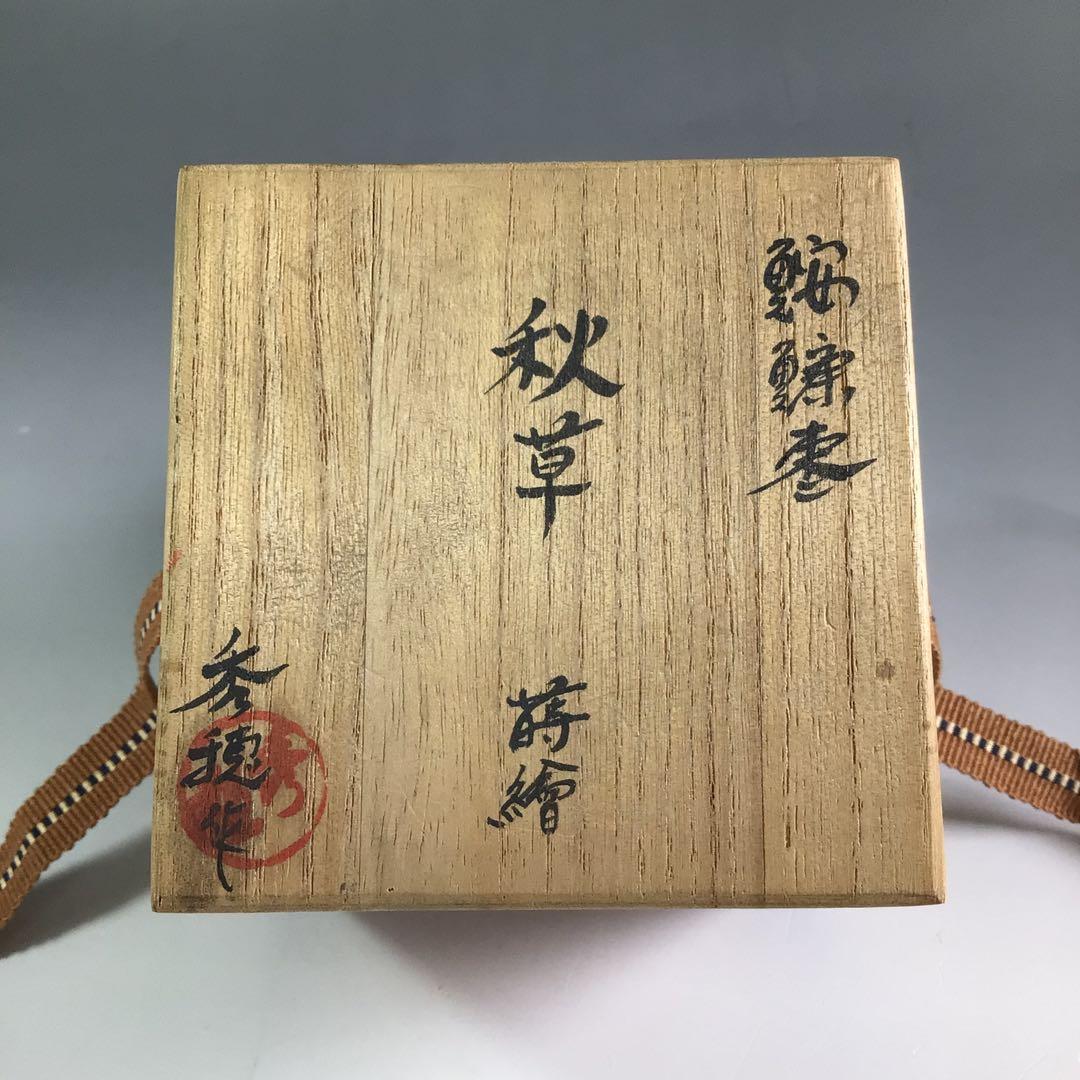 鮟鱇棗
秋草 蒔繪
秀穂作